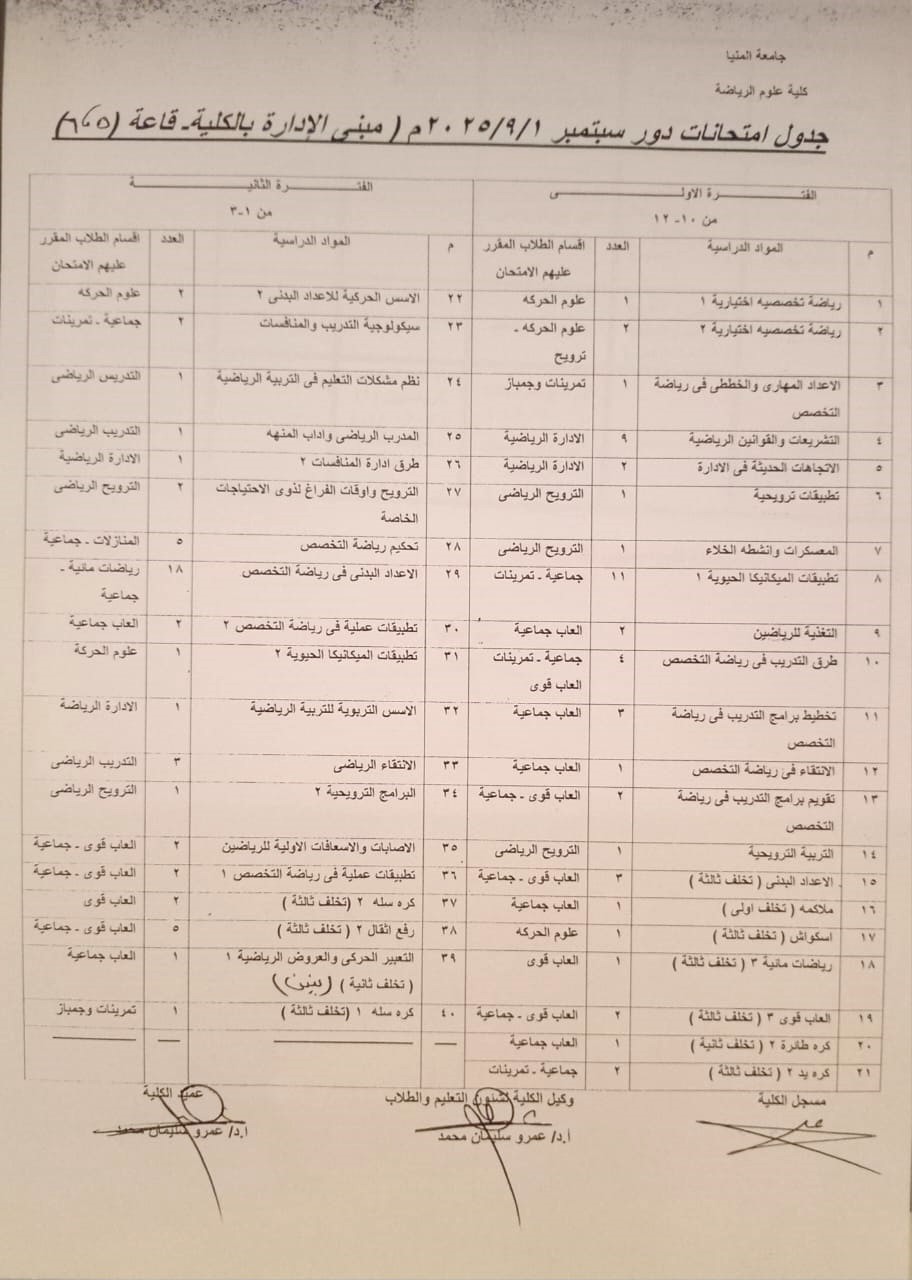 جامعة المنيا
كلية علوم الرياضة
جدول امتحانات دور سبتمبر ٢٠٢٥/٩/١م ( مبنى الإدارة بالكلية- قاعة
الفترة الاولى
من ١٠- ١٢
م المواد الدراسية العدد اقسام الطلاب المقرر
عليهم الامتحان
١ رياضة تخصصيه اختيارية ١ ١ علوم الحركه
٢ رياضة تخصصيه اختيارية ٢ ٢ علوم الحركه -
ترويح
٣ الاعداد المهارى والخططى فى رياضة ١ تمرينات وجمباز
التخصص
٤ التشريعات والقوانين الرياضية ٩ الادارة الرياضية
٥ الاتجاهات الحديثة فى الادارة ٢ الادارة الرياضية
٦ تطبيقات ترويحية ١ الترويح الرياضى
٧ المعسكرات وانشطه الخلاء ١ الترويح الرياضى
٨ تطبيقات الميكانيكا الحيوية ١ ١١ جماعية - تمرينات
٩ التغذية للرياضين ٢ العاب جماعية
١٠ طرق التدريب فى رياضة التخصص ٤ جماعية - تمرينات
العاب قوى
١١ تخطيط برامج التدريب فى رياضة ٣ العاب جماعية
التخصص
١٢ الانتقاء فى رياضة التخصص ١ العاب جماعية
١٣ تقويم برامج التدريب فى رياضة ٢ العاب قوى - جماعية
التخصص
١٤ التربية الترويحية ١ الترويح الرياضى
١٥ الاعداد البدنى ( تخلف ثالثة ) ٣ العاب قوى - جماعية
١٦ ملاكمه ( تخلف اولى ) ١ العاب جماعية
١٧ اسكواش ( تخلف ثالثة ) ١ علوم الحركه
١٨ رياضات مائية ٣ ( تخلف ثالثة ) ١ العاب قوى
١٩ العاب قوى ٣ ( تخلف ثالثة ) ٢ العاب قوى - جماعية
٢٠ كره طائرة ٢ ( تخلف ثانية ) ١ العاب جماعية
٢١ كره يد ٢ ( تخلف ثالثة ) ٢ جماعية - تمرينات
الفترة الثانية
من ١-٣
م المواد الدراسية العدد اقسام الطلاب المقرر
عليهم الامتحان
٢٢ الاسس الحركية للاعداد البدنى ٢ ٢ علوم الحركه
٢٣ سيكولوجية التدريب والمنافسات ٢ جماعية - تمرينات
٢٤ نظم مشكلات التعليم فى التربية الرياضية ١ التدريس الرياضى
٢٥ المدرب الرياضى واداب المنهه ١ التدريب الرياضى
٢٦ طرق ادارة المنافسات ٢ ١ الادارة الرياضية
٢٧ الترويح واوقات الفراغ لذوى الاحتياجات ٢ الترويح الرياضى
الخاصة
٢٨ تحكيم رياضة التخصص ٥ المنازلات - جماعية
٢٩ الاعداد البدنى فى رياضة التخصص ١٨ رياضات مائية -
جماعية
٣٠ تطبيقات عملية فى رياضة التخصص ٢ ٢ العاب جماعية
٣١ تطبيقات الميكانيكا الحيوية ٢ ١ علوم الحركة
٣٢ الاسس التربوية للتربية الرياضية ١ الادارة الرياضة
٣٣ الانتقاء الرياضى ٣ التدريب الرياضى
٣٤ البرامج الترويحية ٢ ١ الترويح الرياضى
٣٥ الاصابات والاسعافات الاولية للرياضين ٢ العاب قوى - جماعية
٣٦ تطبيقات عملية فى رياضة التخصص ١ ٢ العاب قوى - جماعية
٣٧ كره سله ٢ (تخلف ثالثة ) ٢ العاب قوى
٣٨ رفع اثقال ٢ ( تخلف ثالثة ) ٥ العاب قوى - جماعية
٣٩ التعبير الحركى والعروض الرياضية ١ ١ العاب جماعية
( تخلف ثانية ) (بنين)
٤٠ كره سله ١ (تخلف ثالثة ) ١ تمرينات وجمباز
مسجل الكلية وكيل الكلية لشئون التعليم والطلاب عميد الكلية
أ.د/ عمرو سليمان محمد أ.د/ عمرو سليمان محمد